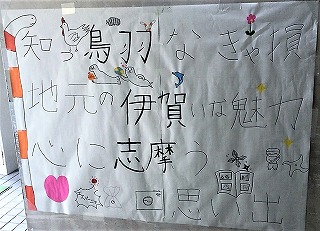 知っ鳥羽なきゃ損
地元の伊賀いな魅力
心に志摩う
思い出